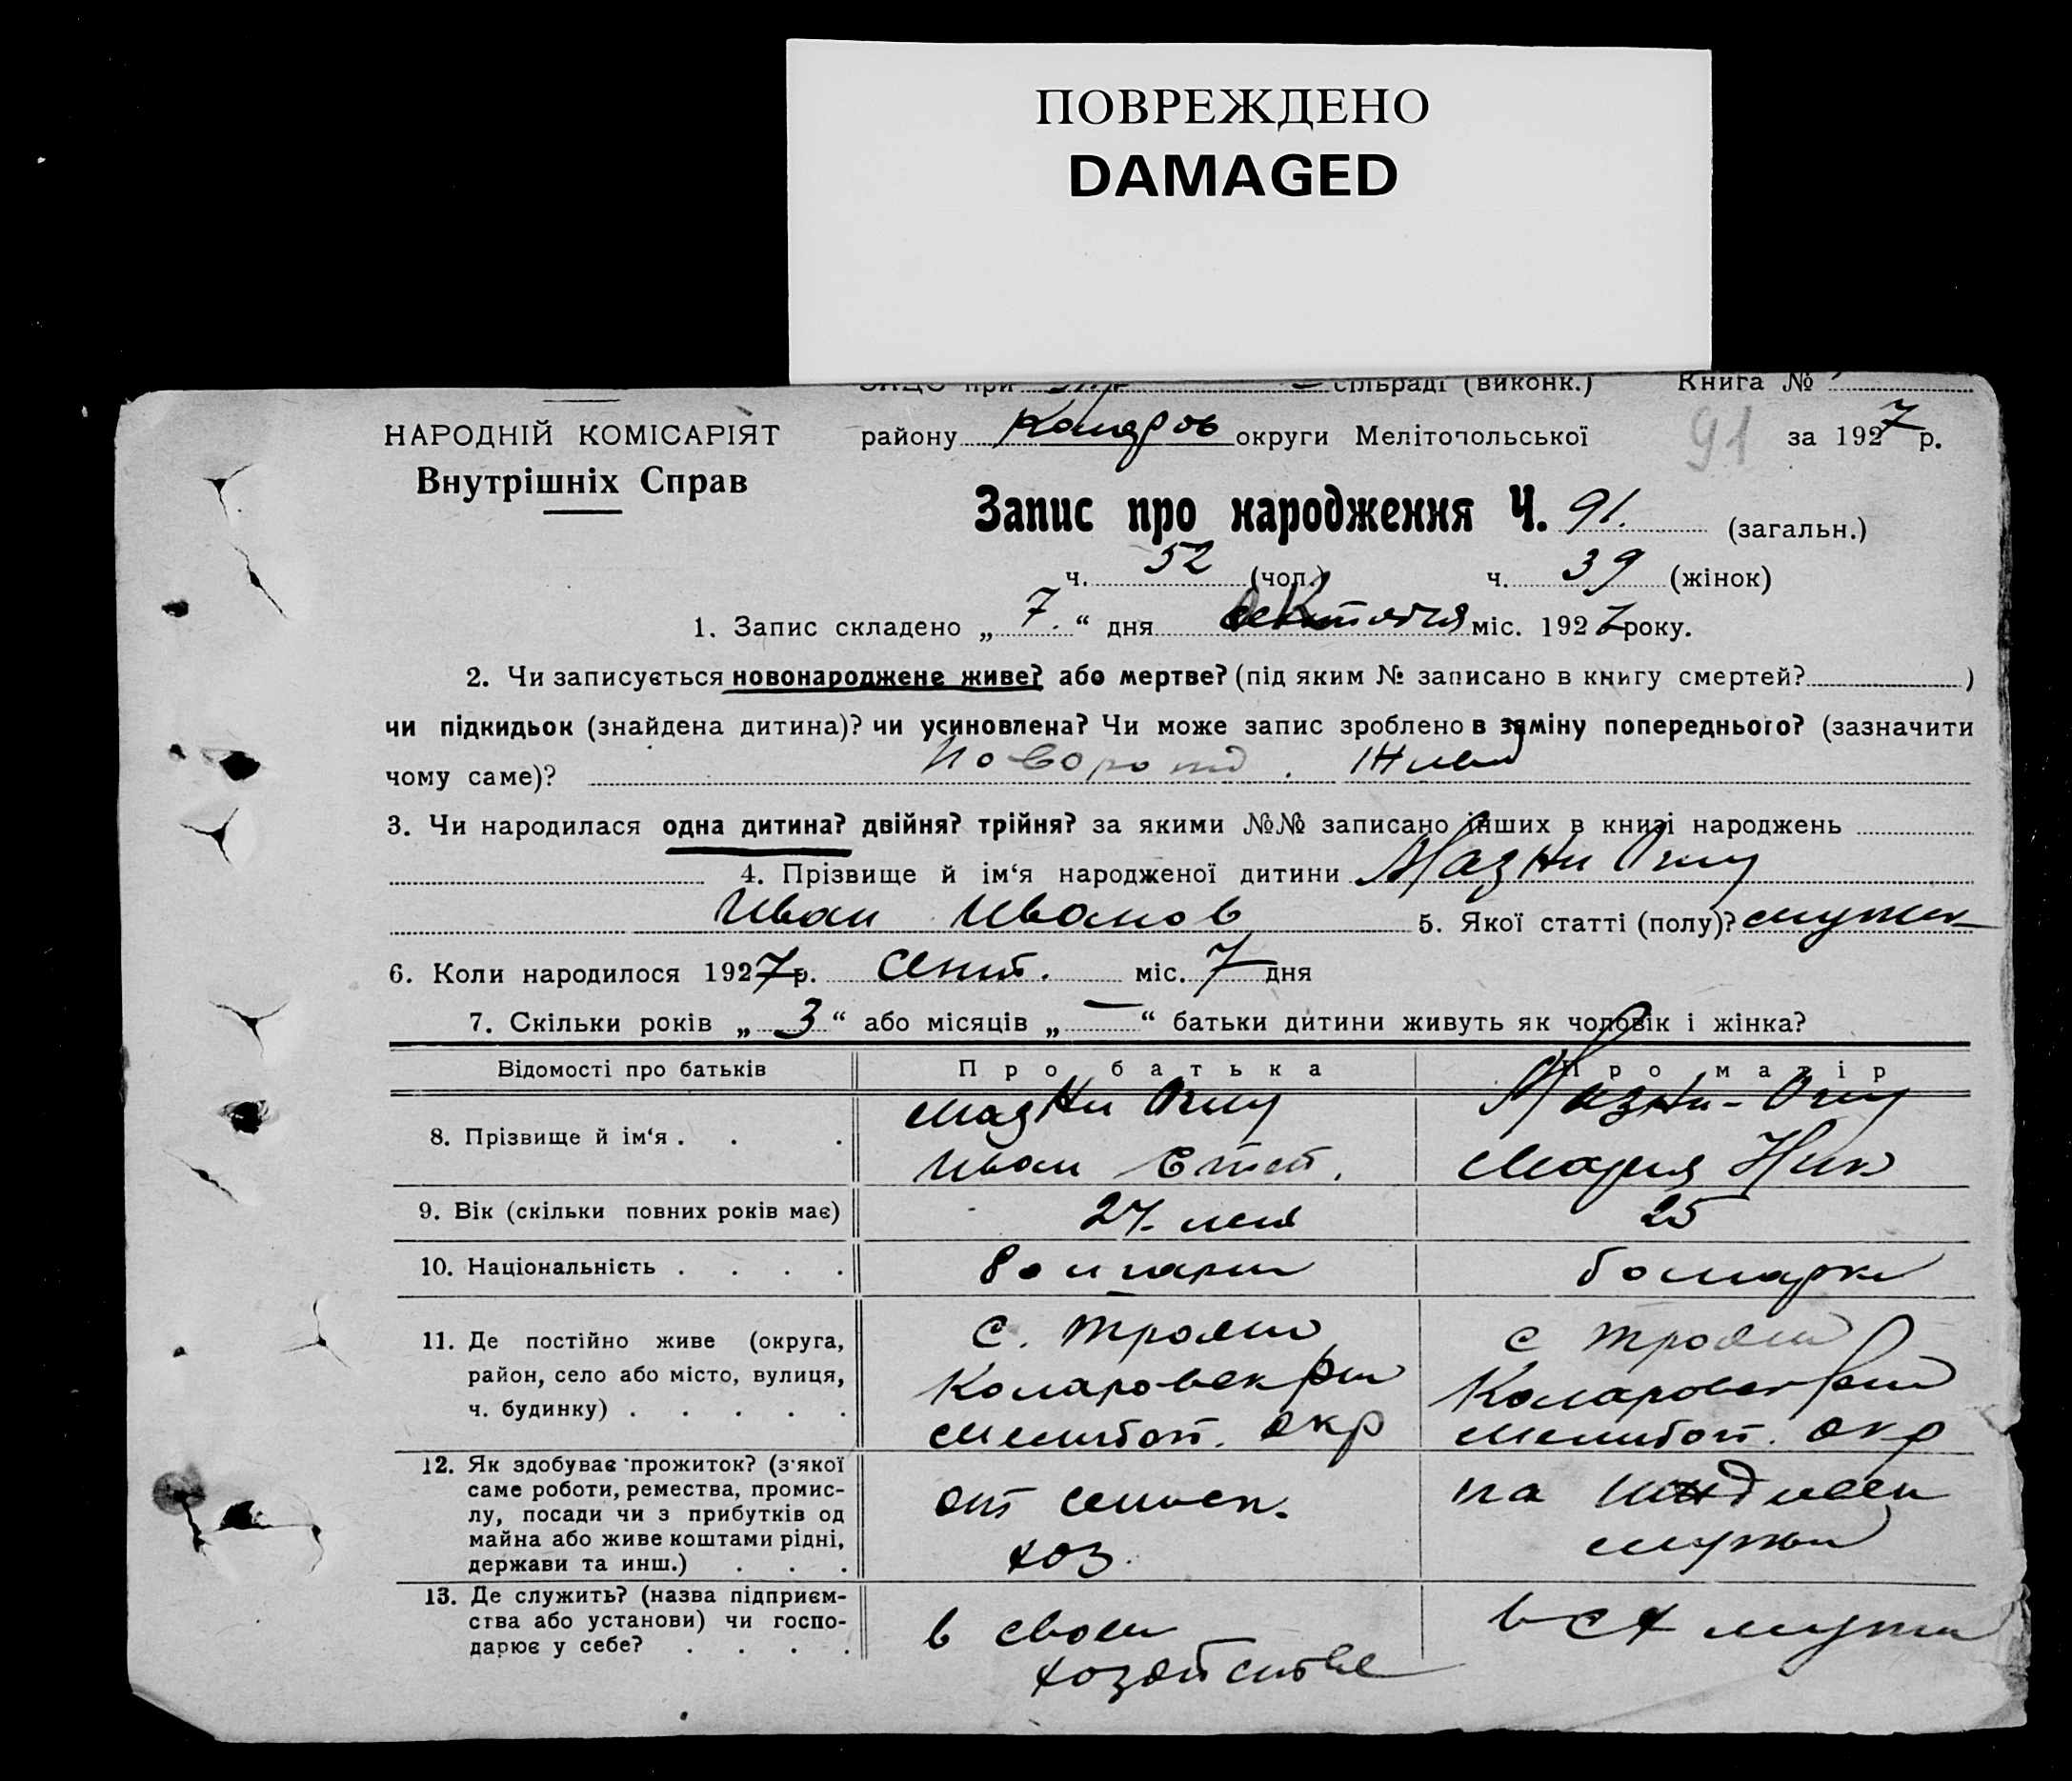 ПОВРЕЖДЕНО
DAMAGED
при сільраді (виконк.) Книга №
НАРОДНІЙ КОМІСАРІЯТ
Внутрішніх Справ
району округи Мелітопольської 91 за 1927 р.
Запис про народження Ч. 91. (загальн.)
ч. 52 (чол.) ч. 39 (жінок)
1. Запис складено „ 7. “ дня міс. 1927 року.
2. Чи записується новонароджене живе? або мертве? (під яким № записано в книгу смертей? )
чи підкидьок (знайдена дитина)? чи усиновлена? Чи може запис зроблено в заміну попереднього? (зазначити
чому саме)? Оворожд. Жив
3. Чи народилася одна дитина? двійня? трійня? за якими №№ записано інших в книзі народжень
4. Прізвище й ім‘я народженої дитини Мазни Оглу
Иван Иванов 5. Якої статті (полу)? мужск
6. Коли народилося 1927 р. Сент. міс. 7 дня
7. Скільки років „ 3 “ або місяців „ — “ батьки дитини живуть як чоловік і жінка?
Відомості про батьків Про батька Про матір
8. Прізвище й ім‘я . . . Мазни Оглу Мазни-Оглу
Иван Мария Ник
9. Вік (скільки повних років має) 27. лет 25
10. Національність . . . . Болгарин болгарка
11. Де постійно живе (округа, с. Троян с Троян
район, село або місто, вулиця, Коларовск рай Коларовск рай
ч. будинку) . . . . . Мелитоп. окр Мелитоп. окр
12. Як здобуває прожиток? (з якої
саме роботи, ремества, промис-
лу, посади чи з прибутків од от сельск. на иждивен
майна або живе коштами рідні, хоз. мужа
держави та инш.) . . .
13. Де служить? (назва підприєм-
ства або установи) чи госпо- в своем в с х мужа
дарює у себе? . . . . хозяйстве